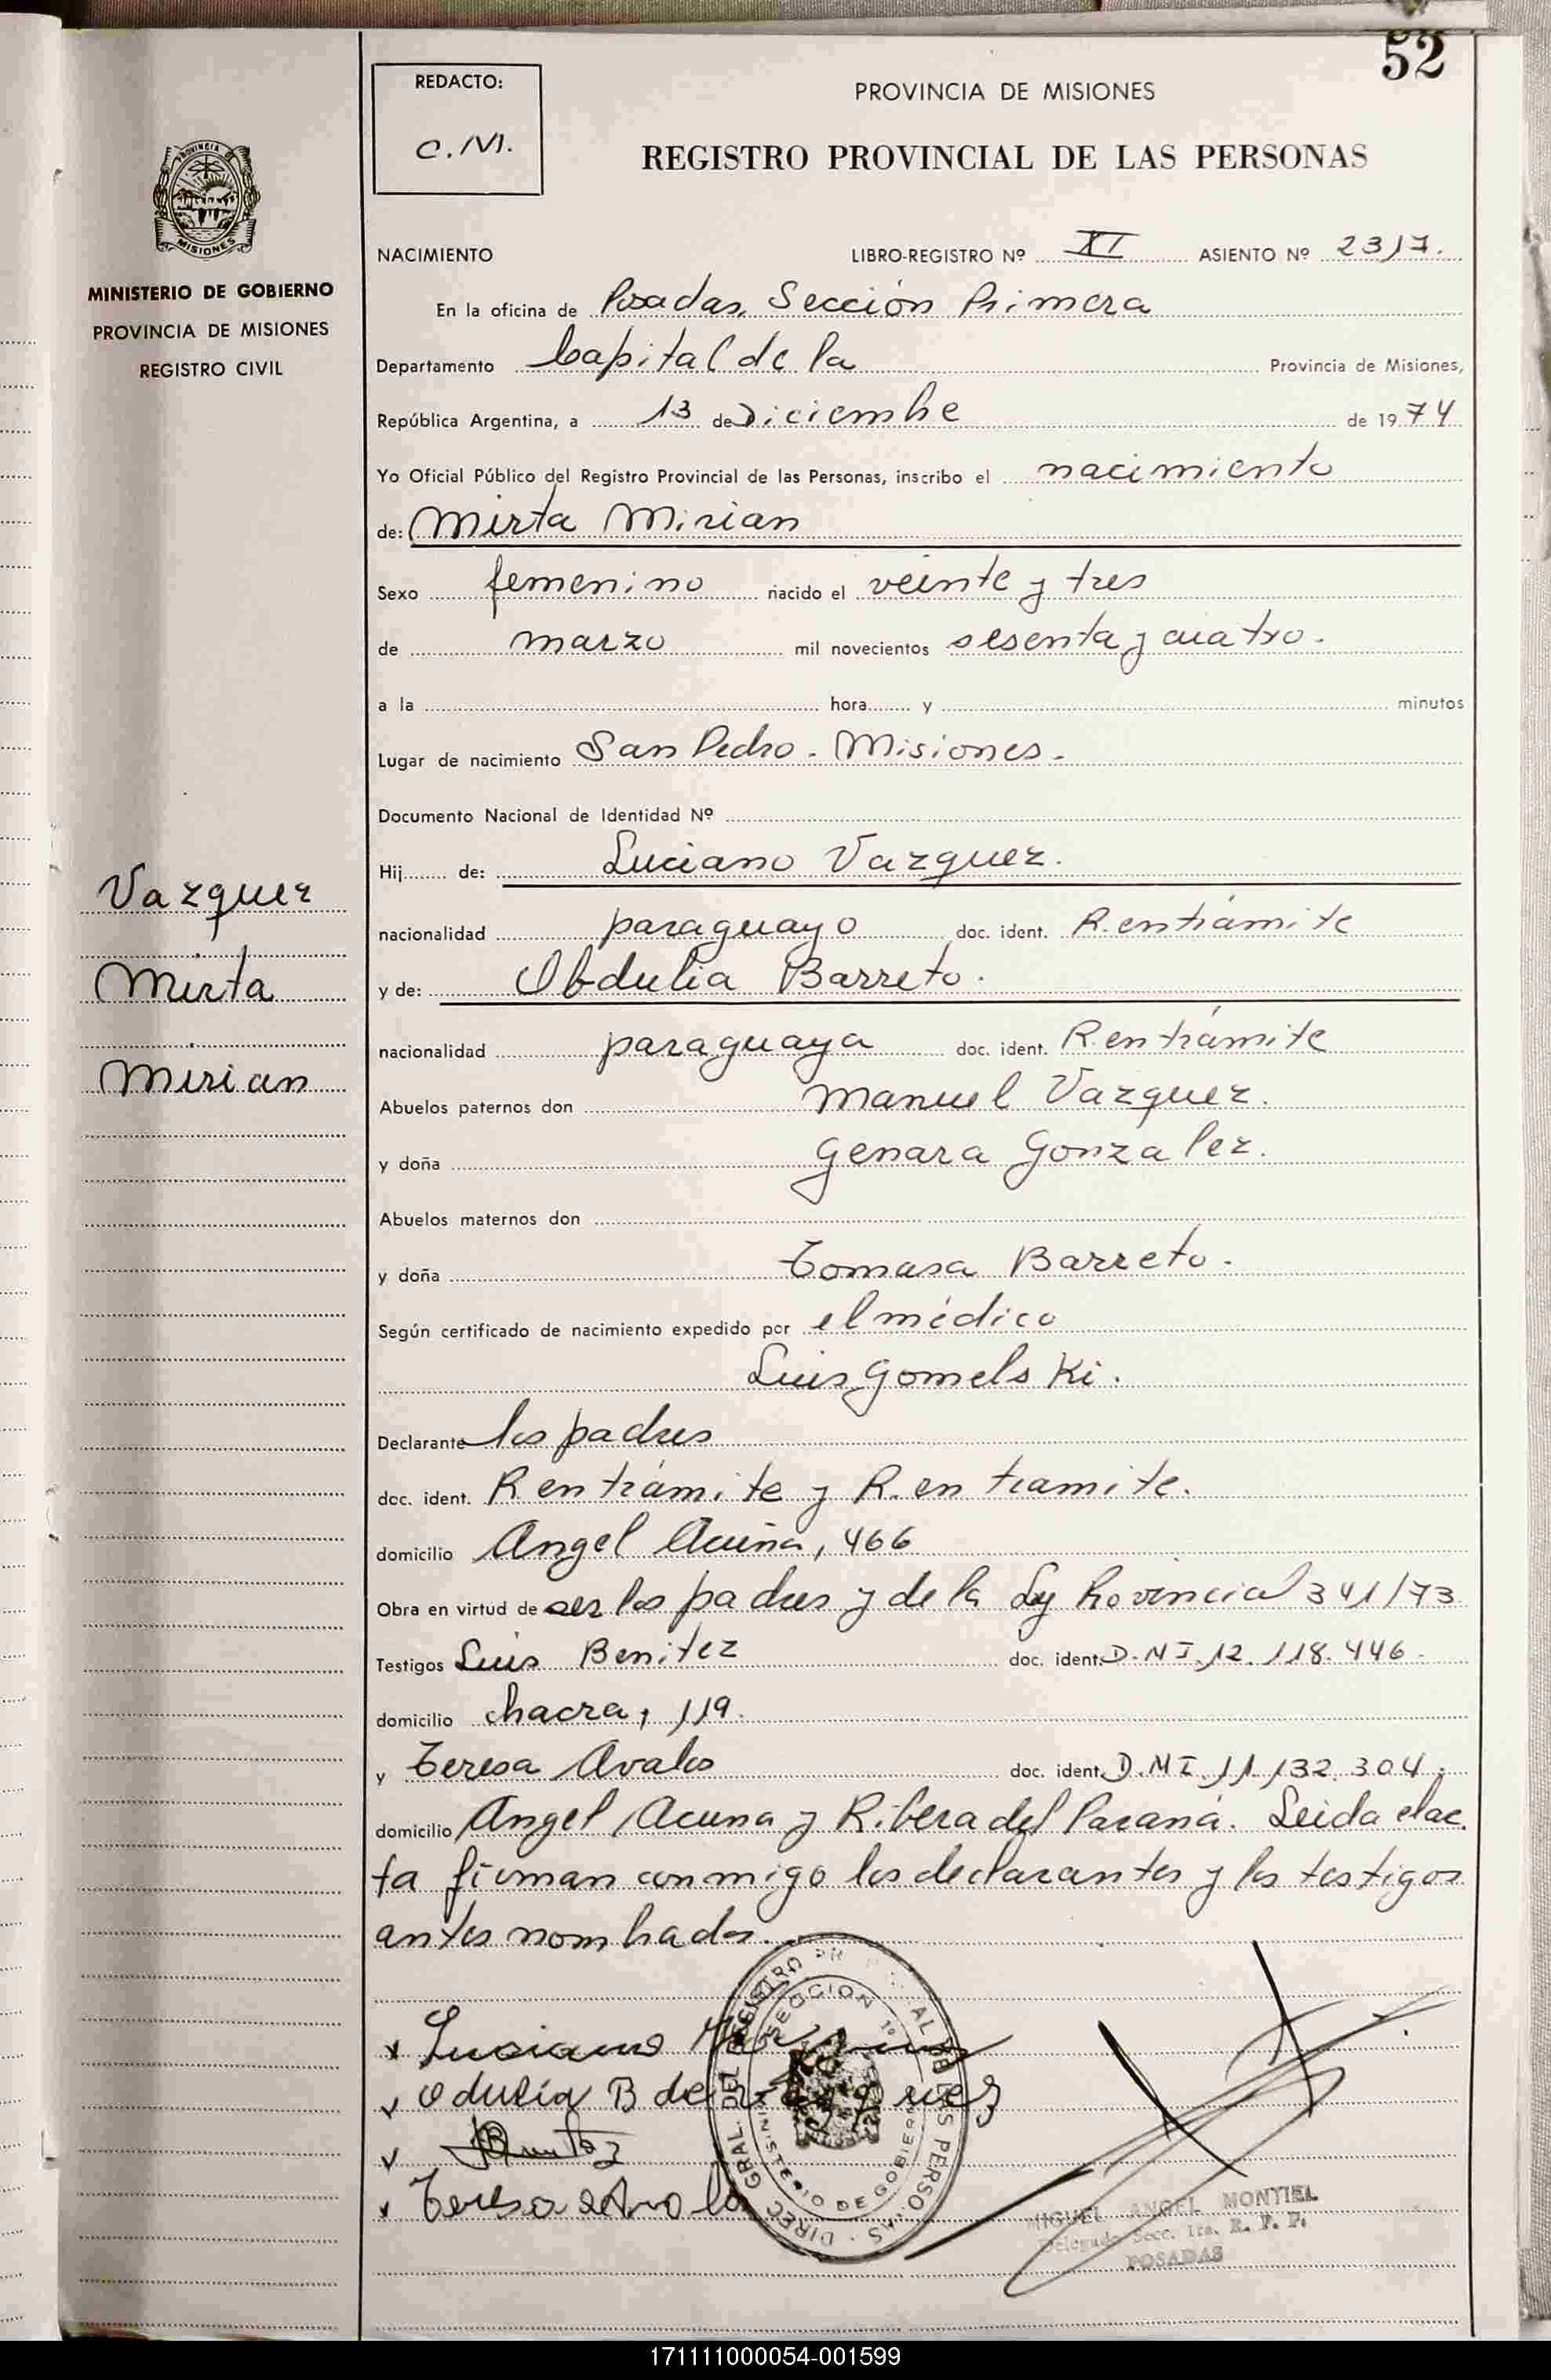 52
REDACTO:
C.M.
PROVINCIA DE MISIONES
REGISTRO PROVINCIAL DE LAS PERSONAS
PROVINCIA
MISIONES
MINISTERIO DE GOBIERNO
PROVINCIA DE MISIONES
REGISTRO CIVIL
NACIMIENTO LIBRO-REGISTRO Nº XI ASIENTO Nº 2317.
En la oficina de Posadas, Sección Primera
Departamento Capital de la Provincia de Misiones,
República Argentina, a 13 de Diciembre de 1974
Yo Oficial Público del Registro Provincial de las Personas, inscribo el nacimiento
de: Mirta Mirian
Sexo femenino nacido el veinte y tres
de marzo mil novecientos sesenta y cuatro.
a la hora y minutos
Lugar de nacimiento San Pedro - Misiones.
Documento Nacional de Identidad Nº
Hij de: Luciano Vazquez.
Vazquez
nacionalidad paraguayo doc. ident. R. en trámite
Mirta
y de: Obdulia Barreto.
nacionalidad paraguaya doc. ident. R. en trámite
Mirian
Abuelos paternos don Manuel Vazquez.
y doña Genara Gonzalez.
Abuelos maternos don
y doña Tomasa Barreto.
Según certificado de nacimiento expedido por el médico
Luis Gomelski.
Declarante los padres
doc. ident. R en trámite y R. en tramite.
domicilio Angel Acuña, 466
Obra en virtud de ser los padres y de la Ley Provincial 341/73
Testigos Luis Benitez doc. ident. D.N.I. 12.118.446.
domicilio chacra, 119.
y Teresa Avalos doc. ident. D.N.I. 11.132.304.
domicilio Angel Acuna y Ribera del Paraná. Leida el ac
ta firman conmigo los declarantes y los testigos
antes nombrados.
Luciano
Odulia B de
Teresa
DIREC. GRAL. DEL REGISTRO PERSONAS
SECCION 1º
MINISTERIO DE GOBIERNO
MIGUEL ANGEL MONTIEL
Delegado Secc. 1ra. R. P. P.
POSADAS
171111000054-001599